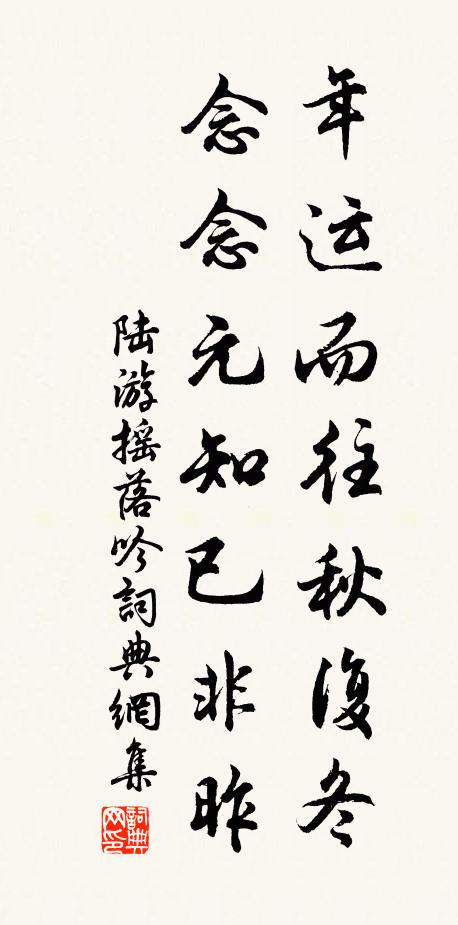 年运而往秋復冬
念念元知已非昨
陆游摇落吟詞典網集
詞典网印